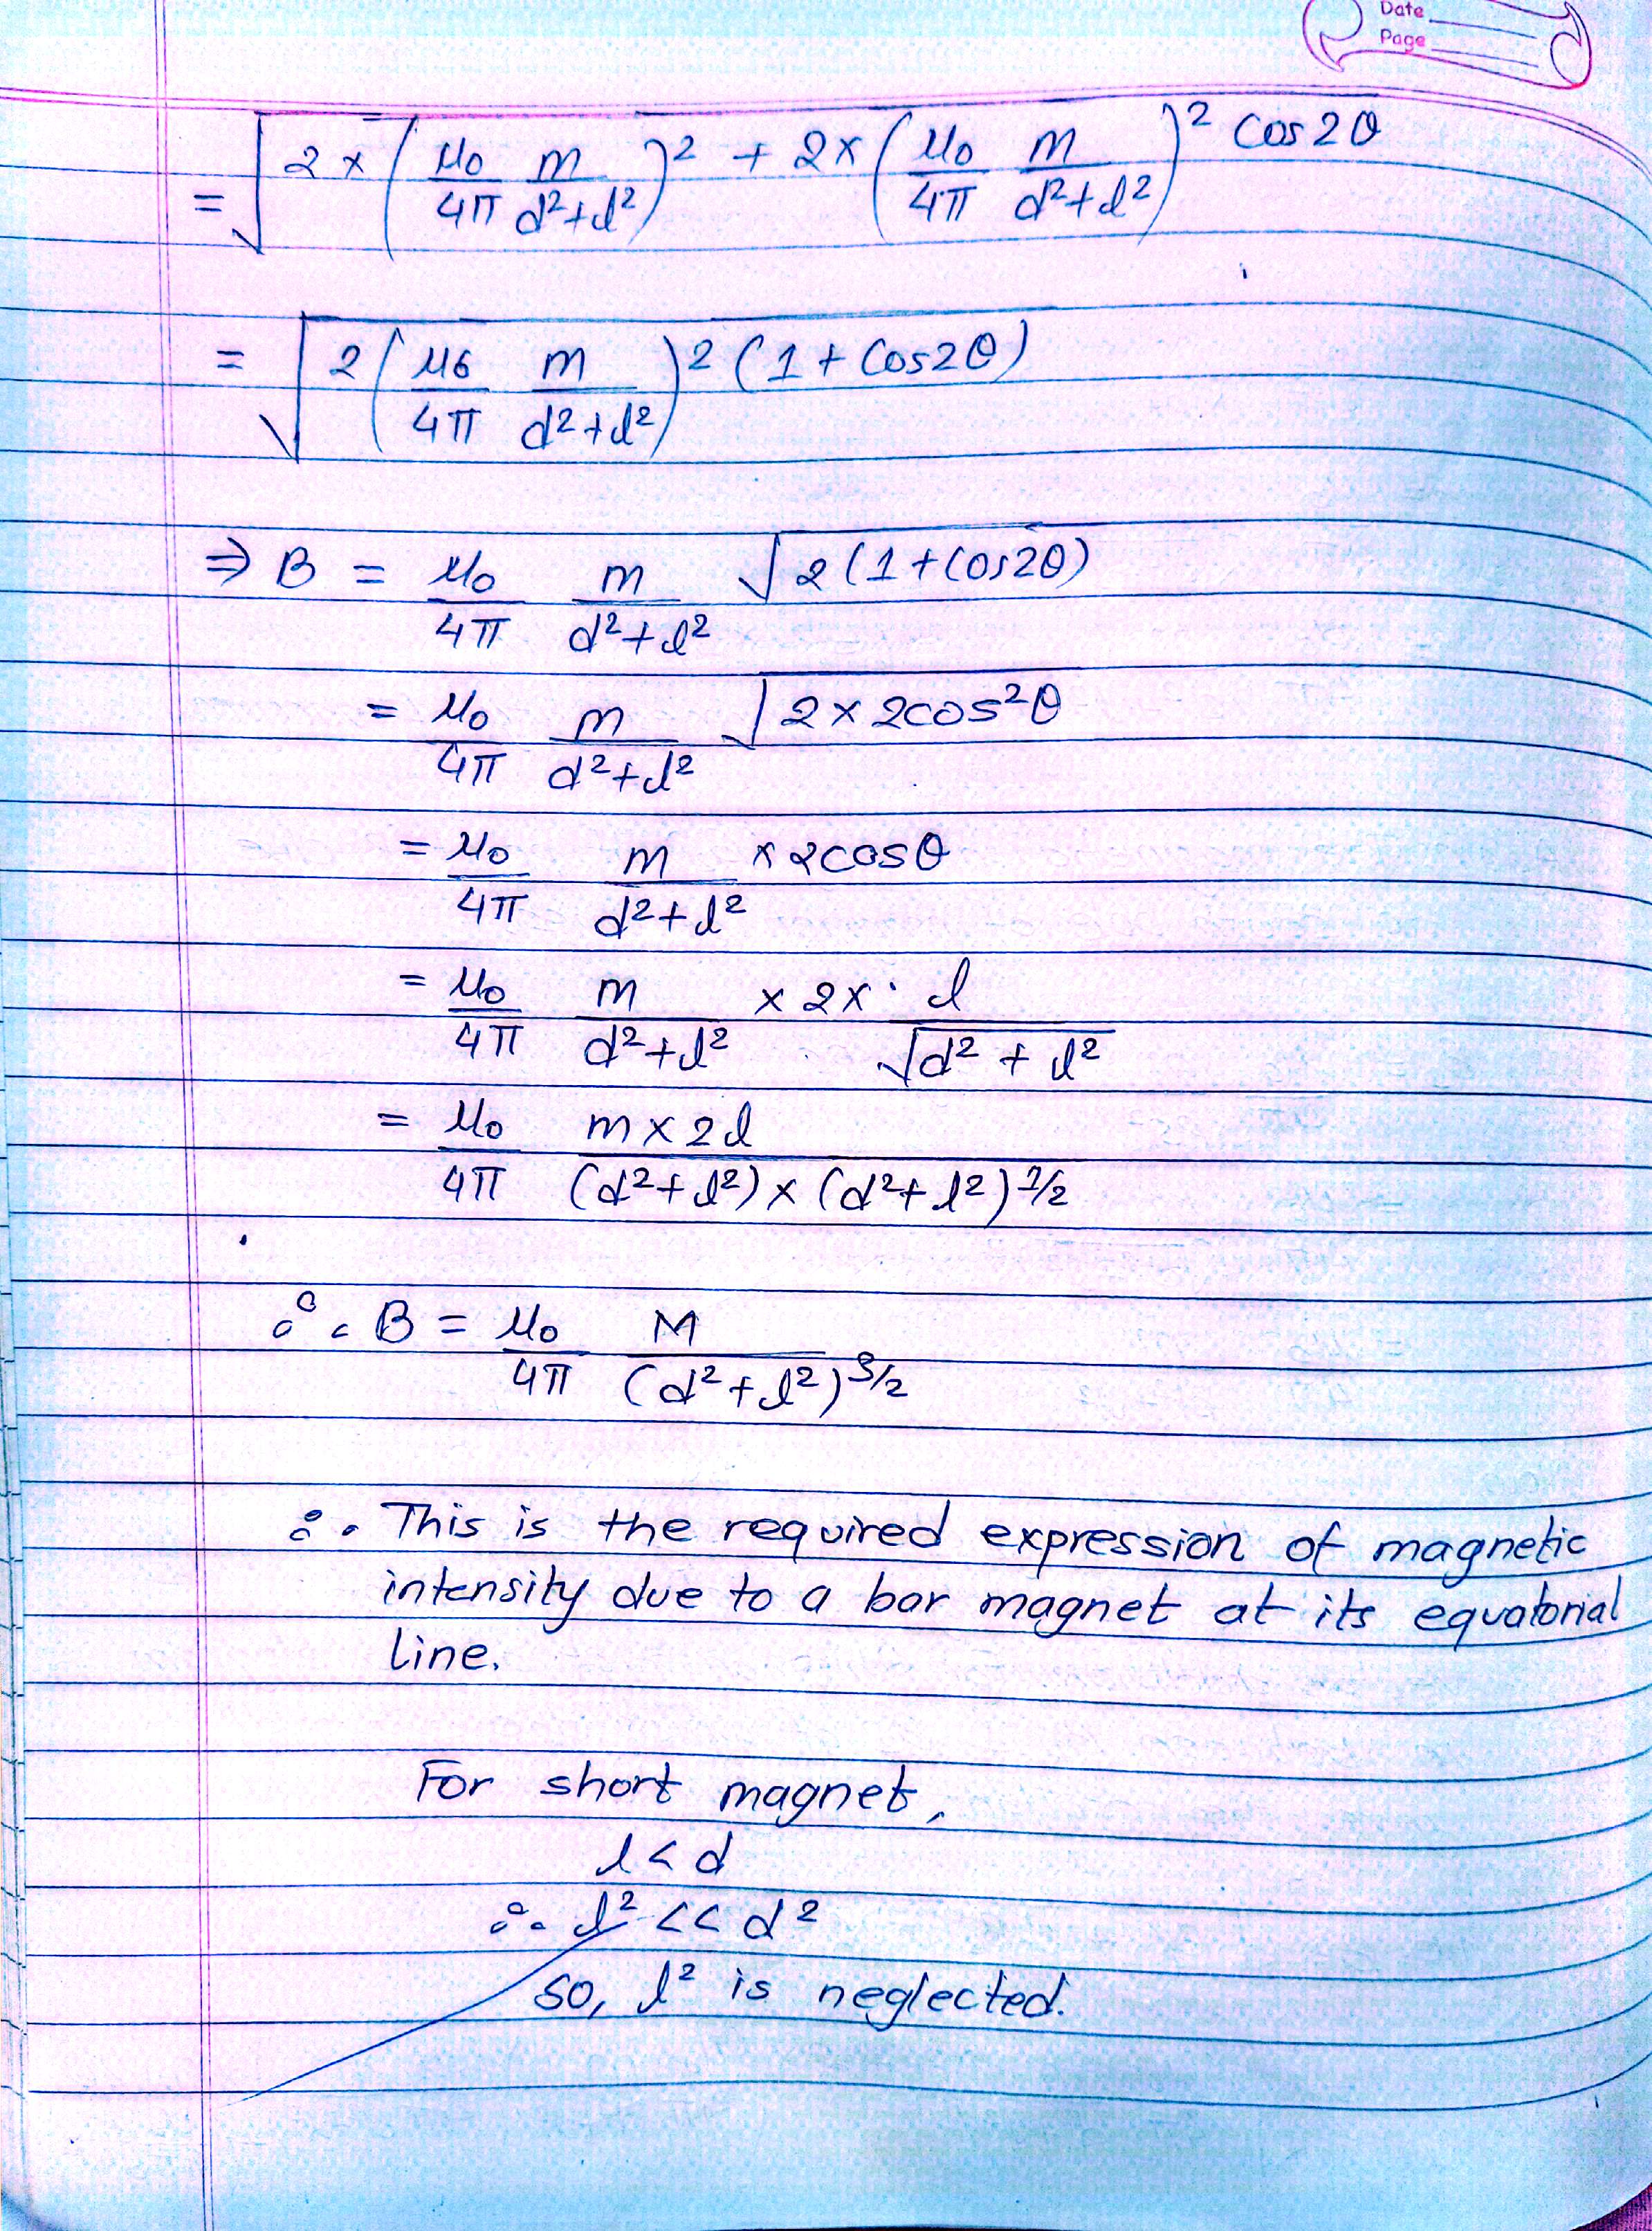 Date
Page
= √(2 × (μ₀/4π m/(d²+l²))² + 2 × (μ₀/4π m/(d²+l²))² Cos2θ)
= √(2 (μ₀/4π m/(d²+l²))² (1 + Cos2θ))
⇒ B = μ₀/4π m/(d²+l²) √(2(1+Cos2θ))
= μ₀/4π m/(d²+l²) √(2 × 2cos²θ)
= μ₀/4π m/(d²+l²) × 2cosθ
= μ₀/4π m/(d²+l²) × 2 × l/√(d² + l²)
= μ₀/4π (m × 2l)/((d²+l²) × (d²+l²)^1/2)
∴ B = μ₀/4π M/(d²+l²)^3/2
∴ This is the required expression of magnetic
intensity due to a bar magnet at its equatorial
line.
For short magnet,
l < d
∴ l² << d²
so, l² is neglected.